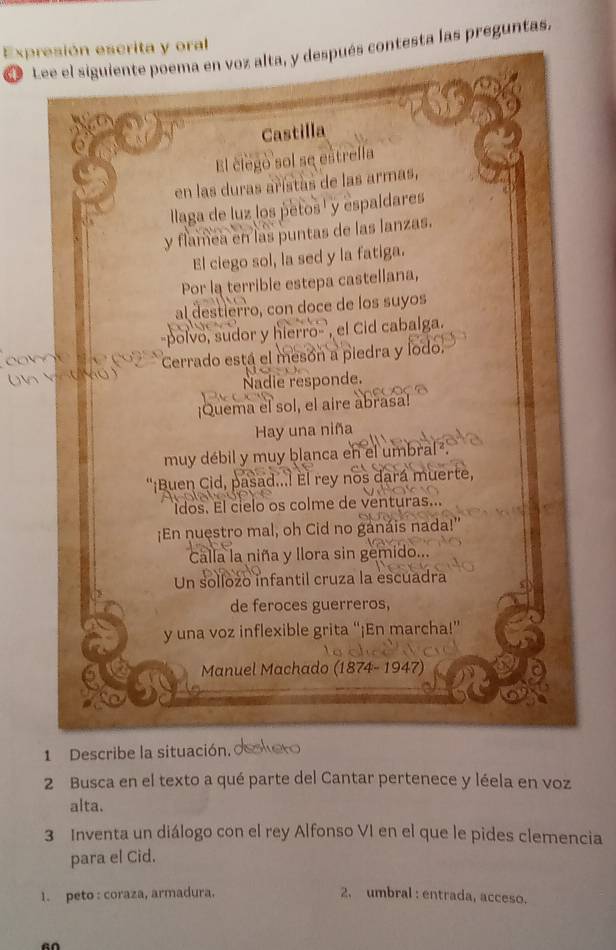 Expresión escrita y oral
4 Lee el siguiente poema en voz alta, y después contesta las preguntas.
Castilla
El ciego sol se estrella
en las duras aristas de las armas,
llaga de luz los petos¹ y espaldares
y flamea en las puntas de las lanzas.
El ciego sol, la sed y la fatiga.
Por la terrible estepa castellana,
al destierro, con doce de los suyos
-polvo, sudor y hierro- , el Cid cabalga.
Cerrado está el mesón a piedra y lodo.
Nadie responde.
¡Quema el sol, el aire abrasa!
Hay una niña
nell'entrata
muy débil y muy blanca en el umbral².
"¡Buen Cid, pasad...! El rey nos dará muerte,
Idos. El cielo os colme de venturas...
¡En nuestro mal, oh Cid no ganáis nada!"
Calla la niña y llora sin gemido...
Un sollozo infantil cruza la escuadra
de feroces guerreros,
y una voz inflexible grita "¡En marcha!"
Manuel Machado (1874- 1947)
1 Describe la situación.
2 Busca en el texto a qué parte del Cantar pertenece y léela en voz
alta.
3 Inventa un diálogo con el rey Alfonso VI en el que le pides clemencia
para el Cid.
1. peto : coraza, armadura. 2. umbral : entrada, acceso.
60